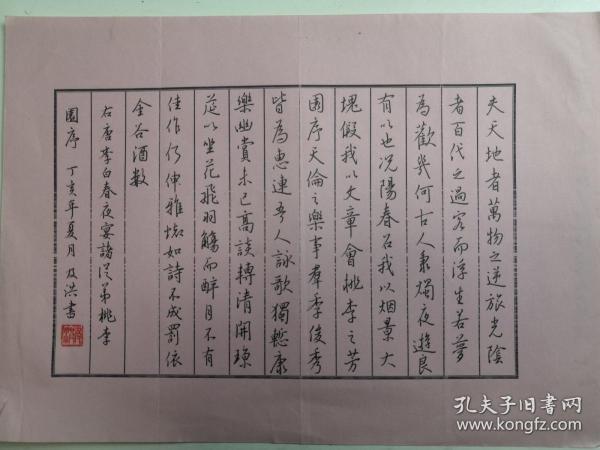 夫天地者萬物之逆旅光陰
者百代之過客而浮生若夢
為歡幾何古人秉燭夜遊良
有以也况陽春召我以烟景大
塊假我以文章會桃李之芳
園序天倫之樂事羣季俊秀
皆為惠連吾人詠歌獨慙康
樂幽賞未已高談轉清開瓊
莚以坐花飛羽觴而醉月不有
佳作何伸雅懷如詩不成罰依
金谷酒數
右唐李白春夜宴諸從弟桃李
園序 丁亥年夏月 洪書
孔夫子旧书网
www.kongfz.com